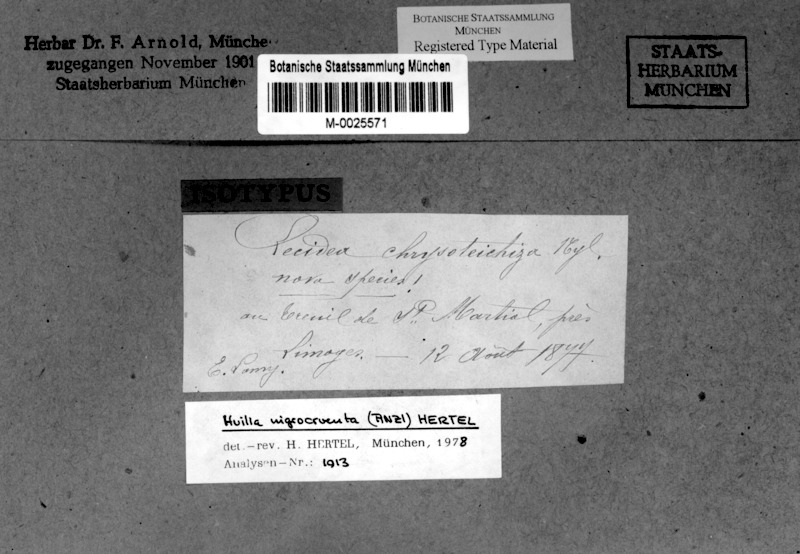 Herbar Dr. F. Arnold, Münche
zugegangen November 1901
Staatsherbarium München
BOTANISCHE STAATSSAMMLUNG
MÜNCHEN
Registered Type Material
Botanische Staatssammlung München
M-0025571
STAATS-
HERBARIUM
MÜNCHEN
ISOTYPUS
Lecidea chrysoteichiza Nyl.
nova species!
au Treuil de St. Martial, près
Limoges. — 12 Août 1877.
E. Lamy.
Huilia nigrocruenta (ANZI) HERTEL
det.-rev. H. HERTEL, München, 1978
Analysen-Nr.: 1913